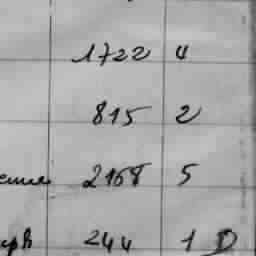 1722 4
815 2
2168 5
244 1 D